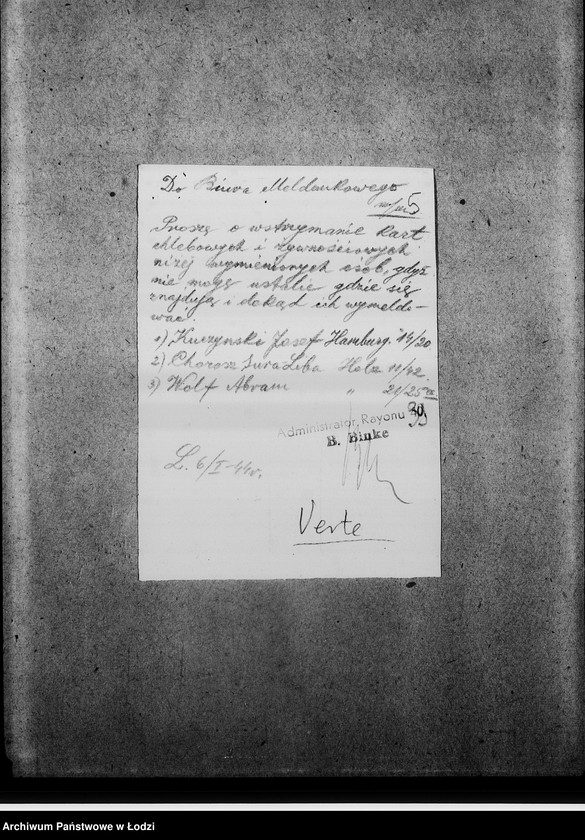 Do Biura Meldunkowego
5
Proszę o wstrzymanie kart
chlebowych i żywnościowych
niżej wymienionych osób, gdyż
nie mogę ustalić gdzie się
znajdują i dokąd ich wymeldo-
wać.
1) Kuczynski Josef Hamburg. 14/20
2) Chorosz Sura Liba Holz 11/42.
3) Wolf Abram " 21/25
Administrator Rayonu
B. Binke
L. 6/I-44r.
Verte
Archiwum Państwowe w Łodzi